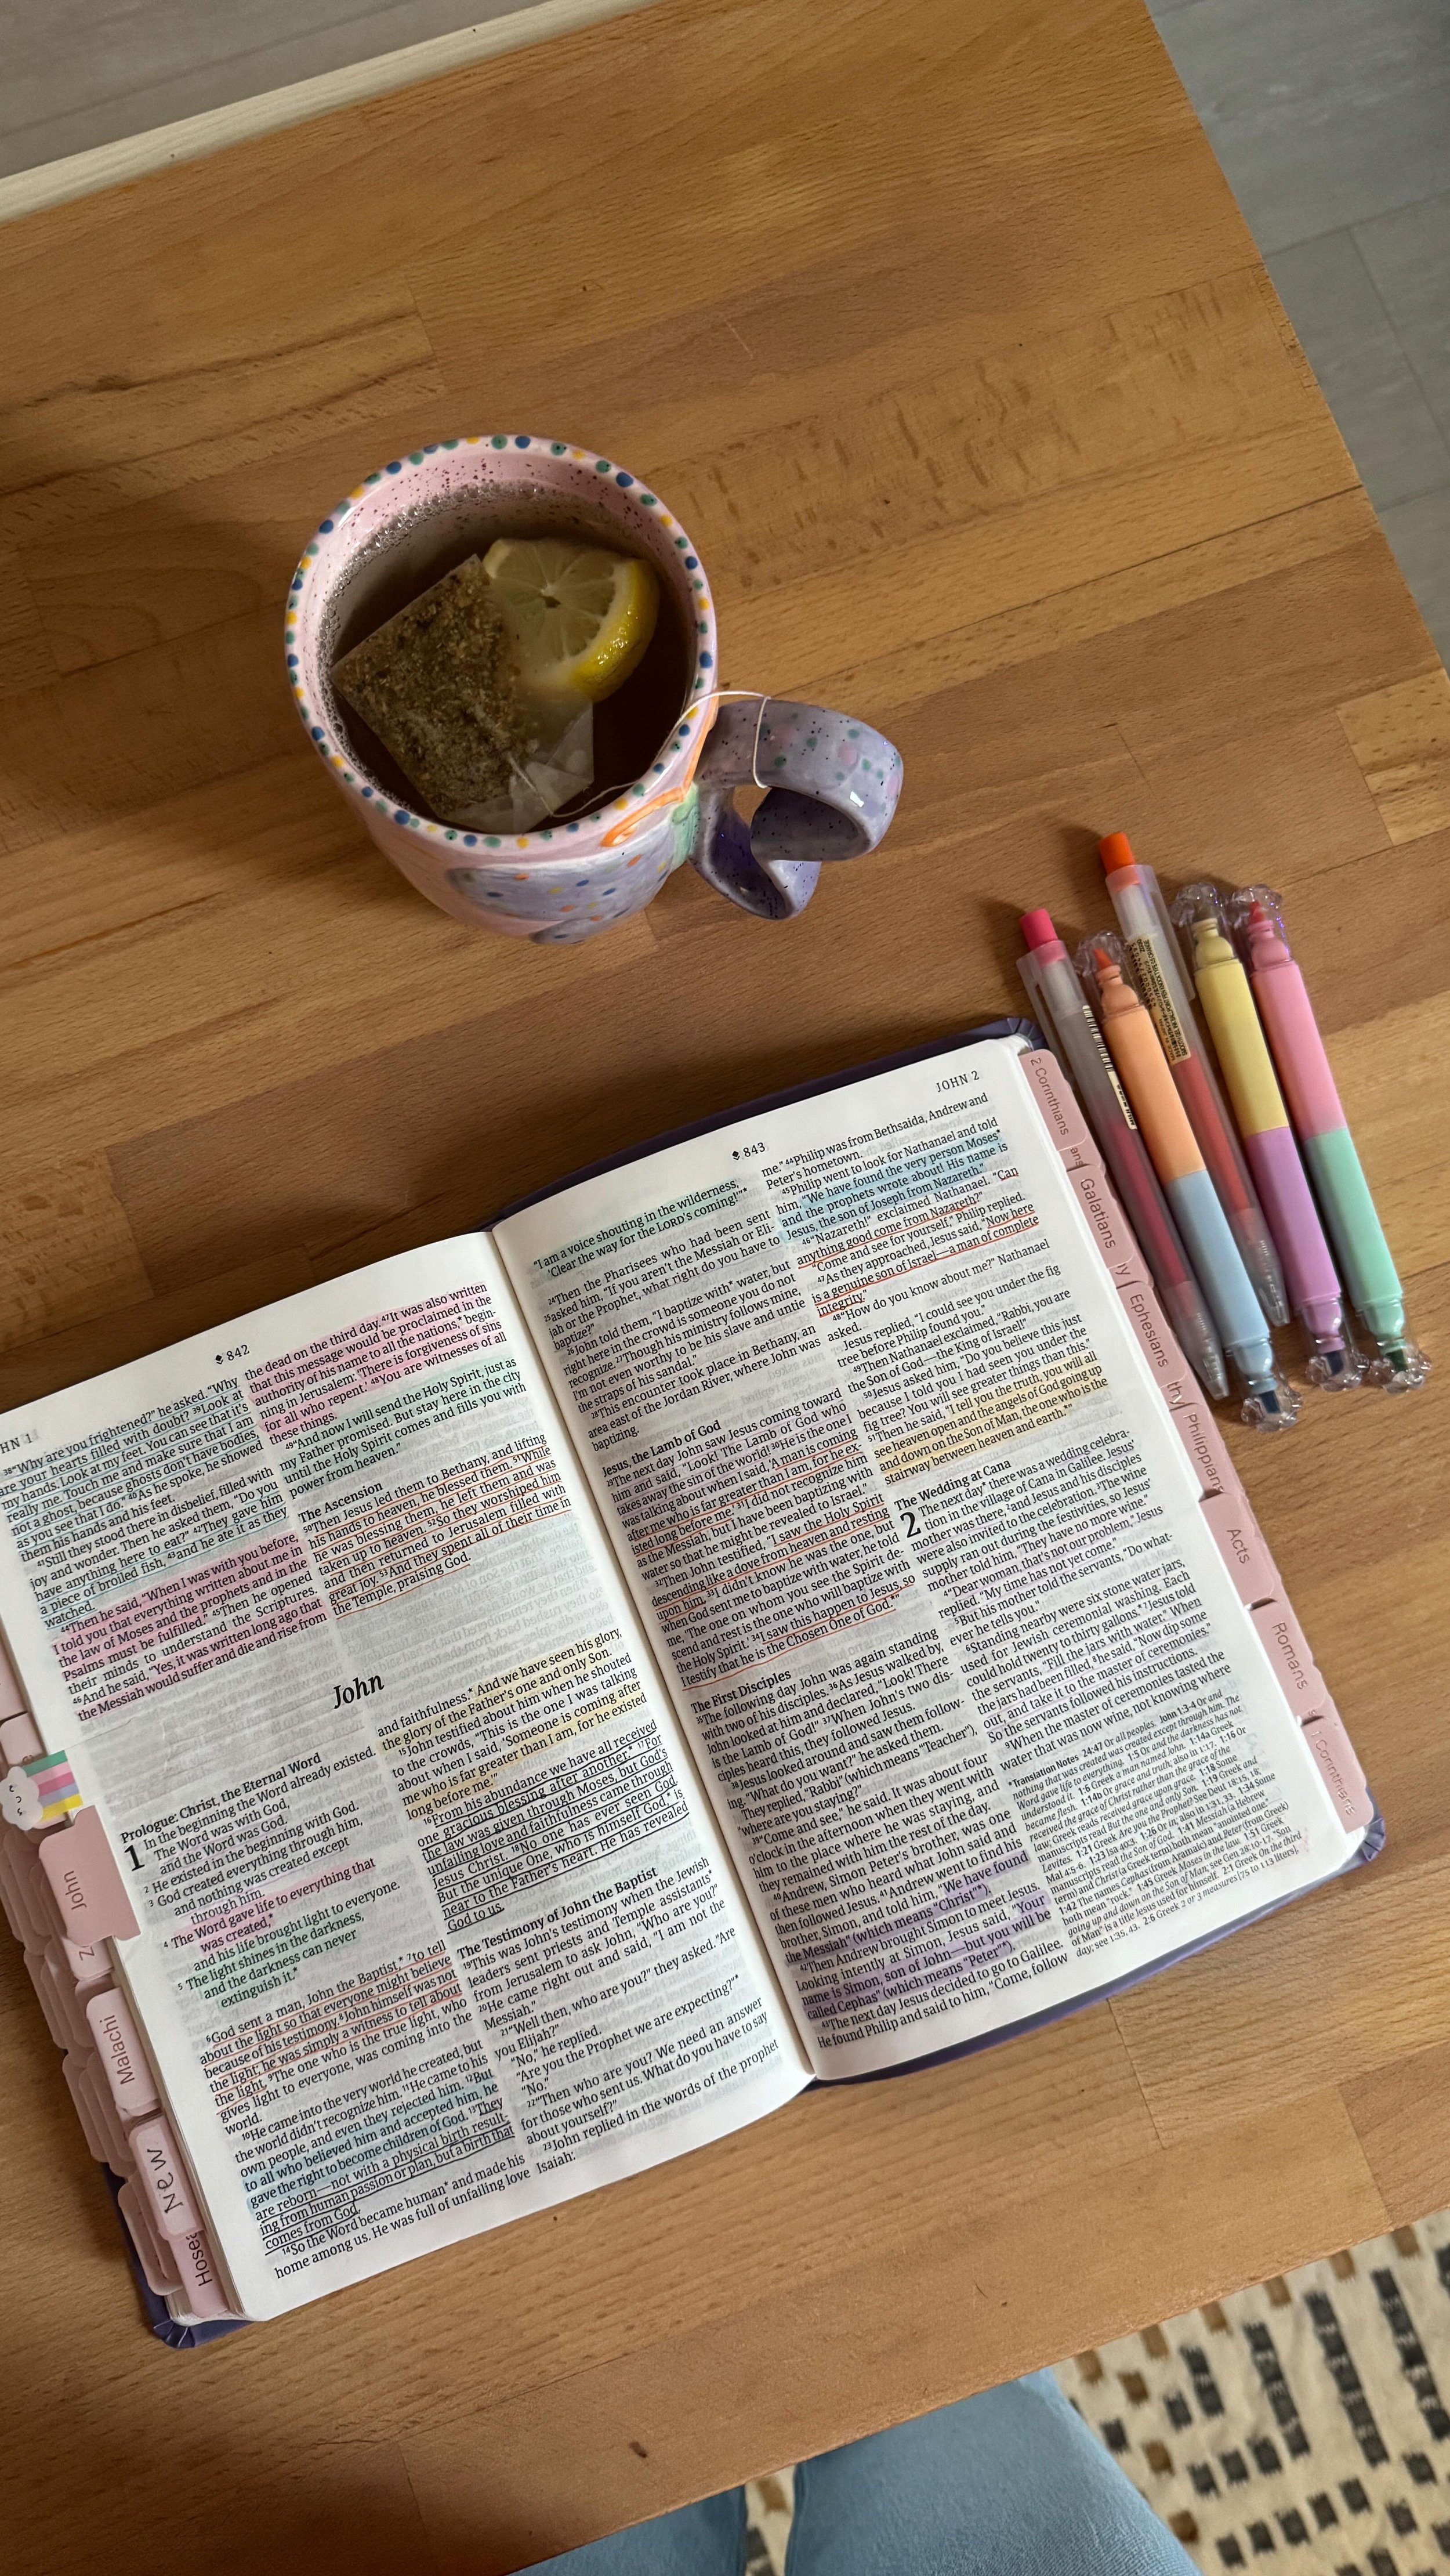 HN 1
842
38"Why are you frightened?" he asked. "Why
are your hearts filled with doubt? 39Look at
my hands. Look at my feet. You can see that it's
really me. Touch me and make sure that I am
not a ghost, because ghosts don't have bodies,
as you see that I do." 40As he spoke, he showed
them his hands and his feet.
41Still they stood there in disbelief, filled with
joy and wonder. Then he asked them, "Do you
have anything here to eat?" 42They gave him
a piece of broiled fish, 43and he ate it as they
watched.
44Then he said, "When I was with you before,
I told you that everything written about me in
the law of Moses and the prophets and in the
Psalms must be fulfilled." 45Then he opened
their minds to understand the Scriptures.
46And he said, "Yes, it was written long ago that
the Messiah would suffer and die and rise from
the dead on the third day. 47It was also written
that this message would be proclaimed in the
authority of his name to all the nations,* begin-
ning in Jerusalem: 'There is forgiveness of sins
for all who repent.' 48You are witnesses of all
these things.
49"And now I will send the Holy Spirit, just as
my Father promised. But stay here in the city
until the Holy Spirit comes and fills you with
power from heaven."
The Ascension
50Then Jesus led them to Bethany, and lifting
his hands to heaven, he blessed them. 51While
he was blessing them, he left them and was
taken up to heaven. 52So they worshiped him
and then returned to Jerusalem filled with
great joy. 53And they spent all of their time in
the Temple, praising God.
John
Prologue: Christ, the Eternal Word
1 In the beginning the Word already existed.
The Word was with God,
and the Word was God.
2 He existed in the beginning with God.
3 God created everything through him,
and nothing was created except
through him.
4 The Word gave life to everything that
was created,*
and his life brought light to everyone.
5 The light shines in the darkness,
and the darkness can never
extinguish it.*
6God sent a man, John the Baptist,* 7to tell
about the light so that everyone might believe
because of his testimony. 8John himself was not
the light; he was simply a witness to tell about
the light. 9The one who is the true light, who
gives light to everyone, was coming into the
world.
10He came into the very world he created, but
the world didn't recognize him. 11He came to his
own people, and even they rejected him. 12But
to all who believed him and accepted him, he
gave the right to become children of God. 13They
are reborn—not with a physical birth result-
ing from human passion or plan, but a birth that
comes from God.
14So the Word became human* and made his
home among us. He was full of unfailing love
and faithfulness.* And we have seen his glory,
the glory of the Father's one and only Son.
15John testified about him when he shouted
to the crowds, "This is the one I was talking
about when I said, 'Someone is coming after
me who is far greater than I am, for he existed
long before me.'"
16From his abundance we have all received
one gracious blessing after another.* 17For
the law was given through Moses, but God's
unfailing love and faithfulness came through
Jesus Christ. 18No one has ever seen God.
But the unique One, who is himself God,* is
near to the Father's heart. He has revealed
God to us.
The Testimony of John the Baptist
19This was John's testimony when the Jewish
leaders sent priests and Temple assistants*
from Jerusalem to ask John, "Who are you?"
20He came right out and said, "I am not the
Messiah."
21"Well then, who are you?" they asked. "Are
you Elijah?"
"No," he replied.
"Are you the Prophet we are expecting?"*
"No."
22"Then who are you? We need an answer
for those who sent us. What do you have to say
about yourself?"
23John replied in the words of the prophet
Isaiah:
843
JOHN 2
"I am a voice shouting in the wilderness,
'Clear the way for the LORD's coming!'"*
24Then the Pharisees who had been sent
25asked him, "If you aren't the Messiah or Eli-
jah or the Prophet, what right do you have to
baptize?"
26John told them, "I baptize with* water, but
right here in the crowd is someone you do not
recognize. 27Though his ministry follows mine,
I'm not even worthy to be his slave and untie
the straps of his sandal."
28This encounter took place in Bethany, an
area east of the Jordan River, where John was
baptizing.
Jesus, the Lamb of God
29The next day John saw Jesus coming toward
him and said, "Look! The Lamb of God who
takes away the sin of the world! 30He is the one I
was talking about when I said, 'A man is coming
after me who is far greater than I am, for he ex-
isted long before me.' 31I did not recognize him
as the Messiah, but I have been baptizing with
water so that he might be revealed to Israel."
32Then John testified, "I saw the Holy Spirit
descending like a dove from heaven and resting
upon him. 33I didn't know he was the one, but
when God sent me to baptize with water, he told
me, 'The one on whom you see the Spirit de-
scend and rest is the one who will baptize with
the Holy Spirit.' 34I saw this happen to Jesus, so
I testify that he is the Chosen One of God.*"
The First Disciples
35The following day John was again standing
with two of his disciples. 36As Jesus walked by,
John looked at him and declared, "Look! There
is the Lamb of God!" 37When John's two dis-
ciples heard this, they followed Jesus.
38Jesus looked around and saw them follow-
ing. "What do you want?" he asked them.
They replied, "Rabbi" (which means "Teacher"),
"where are you staying?"
39"Come and see," he said. It was about four
o'clock in the afternoon when they went with
him to the place where he was staying, and
they remained with him the rest of the day.
40Andrew, Simon Peter's brother, was one
of these men who heard what John said and
then followed Jesus. 41Andrew went to find his
brother, Simon, and told him, "We have found
the Messiah" (which means "Christ"*).
42Then Andrew brought Simon to meet Jesus.
Looking intently at Simon, Jesus said, "Your
name is Simon, son of John—but you will be
called Cephas" (which means "Peter"*).
43The next day Jesus decided to go to Galilee.
He found Philip and said to him, "Come, follow
me." 44Philip was from Bethsaida, Andrew and
Peter's hometown.
45Philip went to look for Nathanael and told
him, "We have found the very person Moses*
and the prophets wrote about! His name is
Jesus, the son of Joseph from Nazareth."
46"Nazareth!" exclaimed Nathanael. "Can
anything good come from Nazareth?"
"Come and see for yourself," Philip replied.
47As they approached, Jesus said, "Now here
is a genuine son of Israel—a man of complete
integrity."
48"How do you know about me?" Nathanael
asked.
Jesus replied, "I could see you under the fig
tree before Philip found you."
49Then Nathanael exclaimed, "Rabbi, you are
the Son of God—the King of Israel!"
50Jesus asked him, "Do you believe this just
because I told you I had seen you under the
fig tree? You will see greater things than this."
51Then he said, "I tell you the truth, you will all
see heaven open and the angels of God going up
and down on the Son of Man, the one who is the
stairway between heaven and earth.*"
The Wedding at Cana
2 The next day* there was a wedding celebra-
tion in the village of Cana in Galilee. Jesus'
mother was there, 2and Jesus and his disciples
were also invited to the celebration. 3The wine
supply ran out during the festivities, so Jesus'
mother told him, "They have no more wine."
4"Dear woman, that's not our problem," Jesus
replied. "My time has not yet come."
5But his mother told the servants, "Do what-
ever he tells you."
6Standing nearby were six stone water jars,
used for Jewish ceremonial washing. Each
could hold twenty to thirty gallons.* 7Jesus told
the servants, "Fill the jars with water." When
the jars had been filled, 8he said, "Now dip some
out, and take it to the master of ceremonies."
So the servants followed his instructions.
9When the master of ceremonies tasted the
water that was now wine, not knowing where
*Translation Notes 24:47 Or all peoples. John 1:3-4 Or and
nothing that was created was created except through him. The
Word gave life to everything. 1:5 Or and the darkness has not
understood it. 1:6 Greek a man named John. 1:14a Greek
became flesh. 1:14b Or grace and truth; also in 1:17. 1:16 Or
received the grace of Christ rather than the grace of the
law; Greek received grace upon grace. 1:18 Some
manuscripts read But the one and only Son. 1:19 Greek and
Levites. 1:21 Greek Are you the Prophet? See Deut 18:15, 18;
Mal 4:5-6. 1:23 Isa 40:3. 1:26 Or in; also in 1:31, 33. 1:34 Some
manuscripts read the Son of God. 1:41 Messiah (a Hebrew
term) and Christ (a Greek term) both mean "anointed one."
1:42 The names Cephas (from Aramaic) and Peter (from Greek)
both mean "rock." 1:45 Greek Moses in the law. 1:51 Greek
going up and down on the Son of Man; see Gen 28:10-17. "Son
of Man" is a title Jesus used for himself. 2:1 Greek On the third
day; see 1:35, 43. 2:6 Greek 2 or 3 measures [75 to 113 liters].
John
Malachi
New
Hosea
2 Corinthians
Galatians
Ephesians
thy
Philippian
Acts
Romans
1 Corinthians